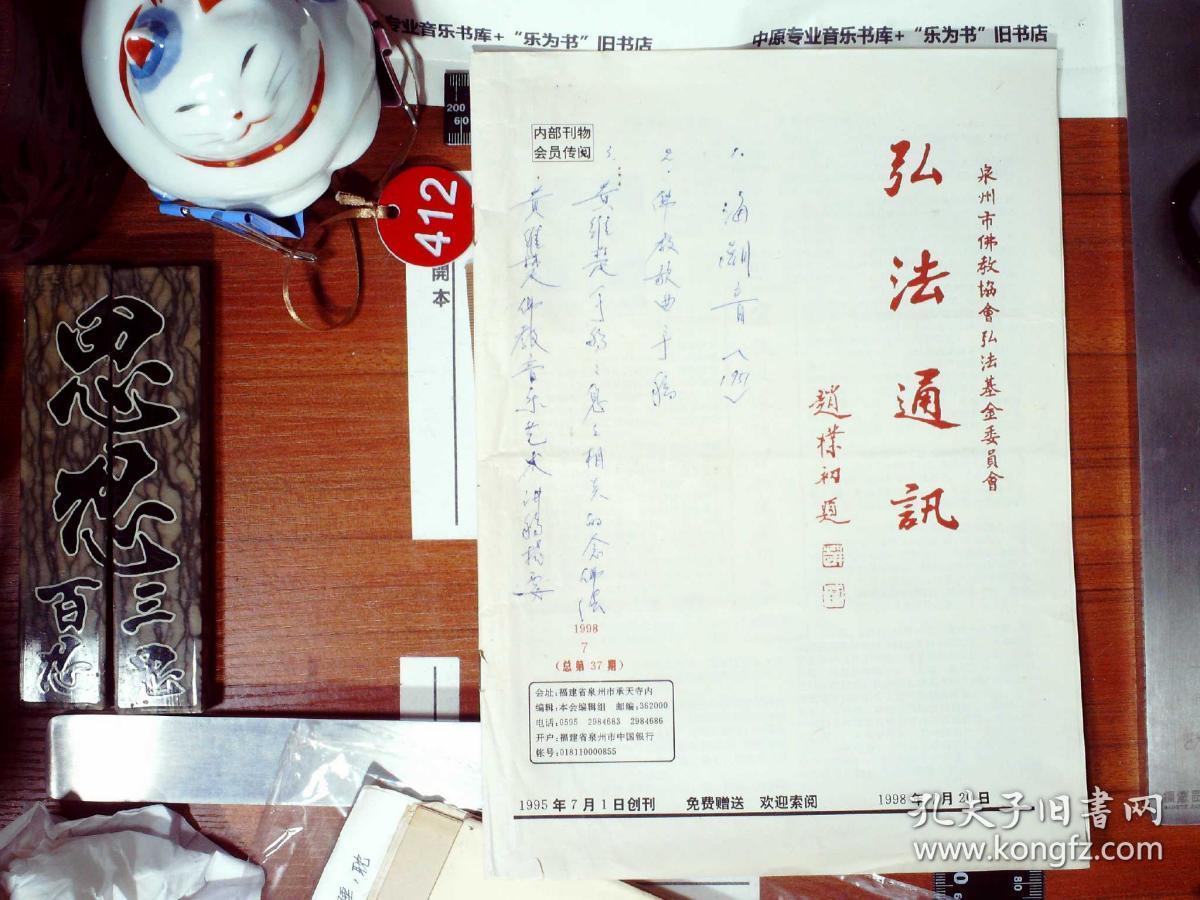 专业音乐书库+“乐为书”旧书店
中原专业音乐书库+“乐为书”旧书店
200
60
412
開本
忍忍
三忍
百忍
泉州市佛教協會弘法基金委員會
弘法通訊
趙樸初題
内部刊物
会员传阅
1. 海潮音(1951)
2. 佛教歌曲手稿
3. 黄维楚手稿：息息相关的念佛法
黄維楚佛教音乐艺术讲稿摘要
1998
7
(总第37期)
会址:福建省泉州市承天寺内
编辑:本会编辑组 邮编:362000
电话:0595 2984683 2984686
开户:福建省泉州市中国银行
帐号:018110000855
1995年7月1日创刊 免费赠送 欢迎索阅
1998年 月20日
孔夫子旧书网
www.kongfz.com
80